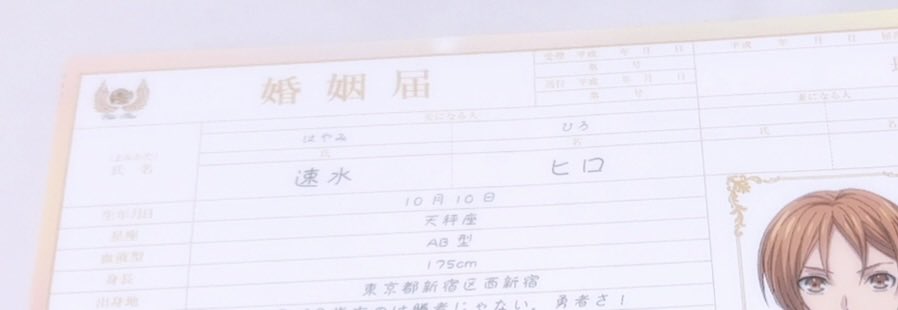 婚姻届
受理 平成 年 月 日
第 号
送付 平成 年 月 日
第 号
平成 年 月 日
夫になる人
妻になる人
はやみ ひろ
(よみかた)
氏 名
氏 名
氏
速水 ヒロ
生年月日 10月10日
星座 天秤座
血液型 AB型
身長 175cm
出身地 東京都新宿区西新宿
は勝者じゃない。勇者さ!